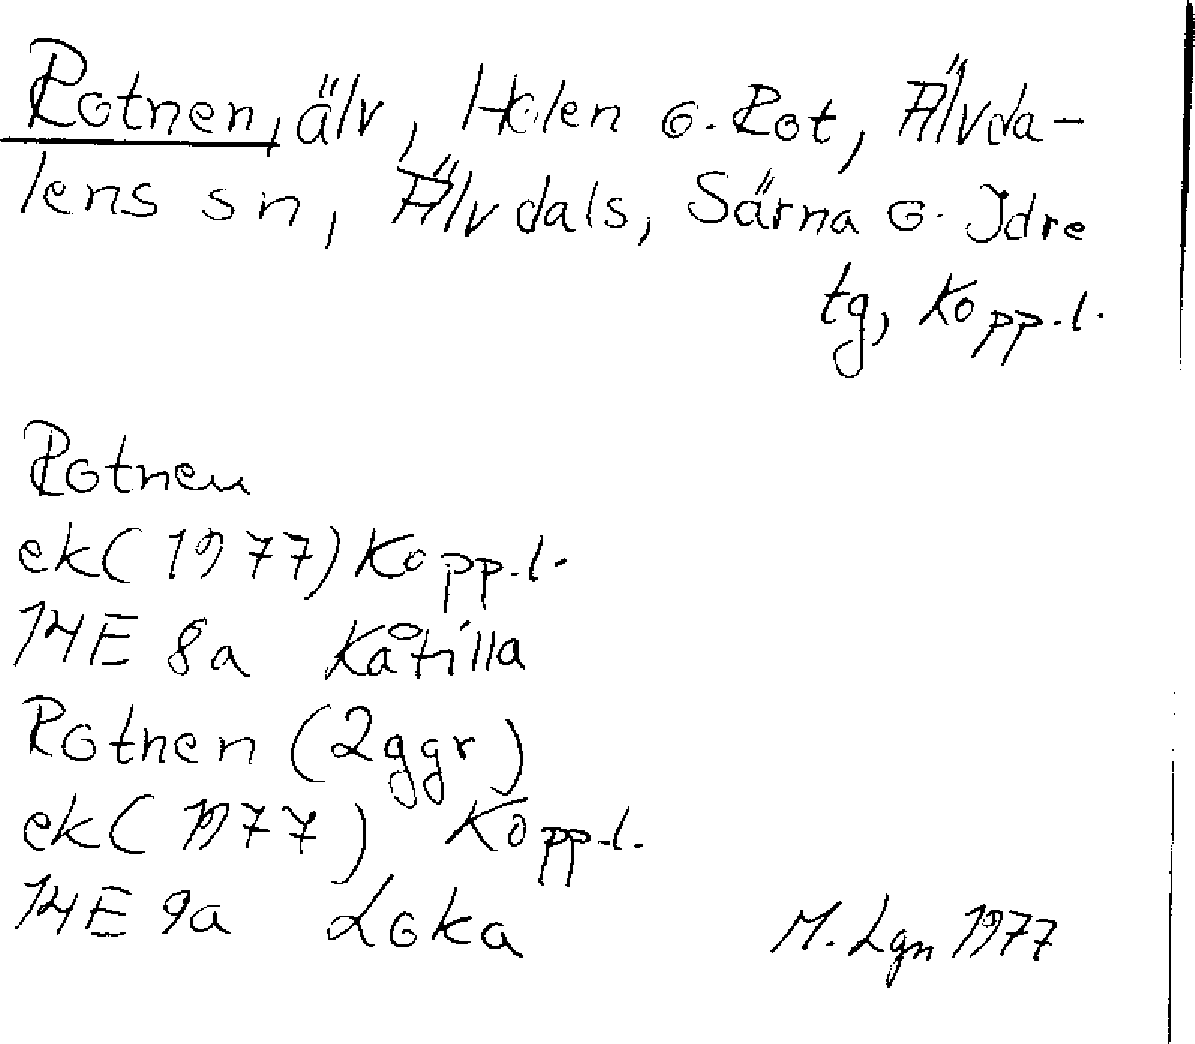 Rotnen, älv, Holen o. Rot, Älvda-
lens sn, Älvdals, Särna o. Idre
tg, Kopp.l.
Rotnen
ek(1977)Kopp.l.
14E 8a Kåtilla
Rotnen (2ggr)
ek(1977) Kopp.l.
14E 9a Loka
M. Lgn 1977